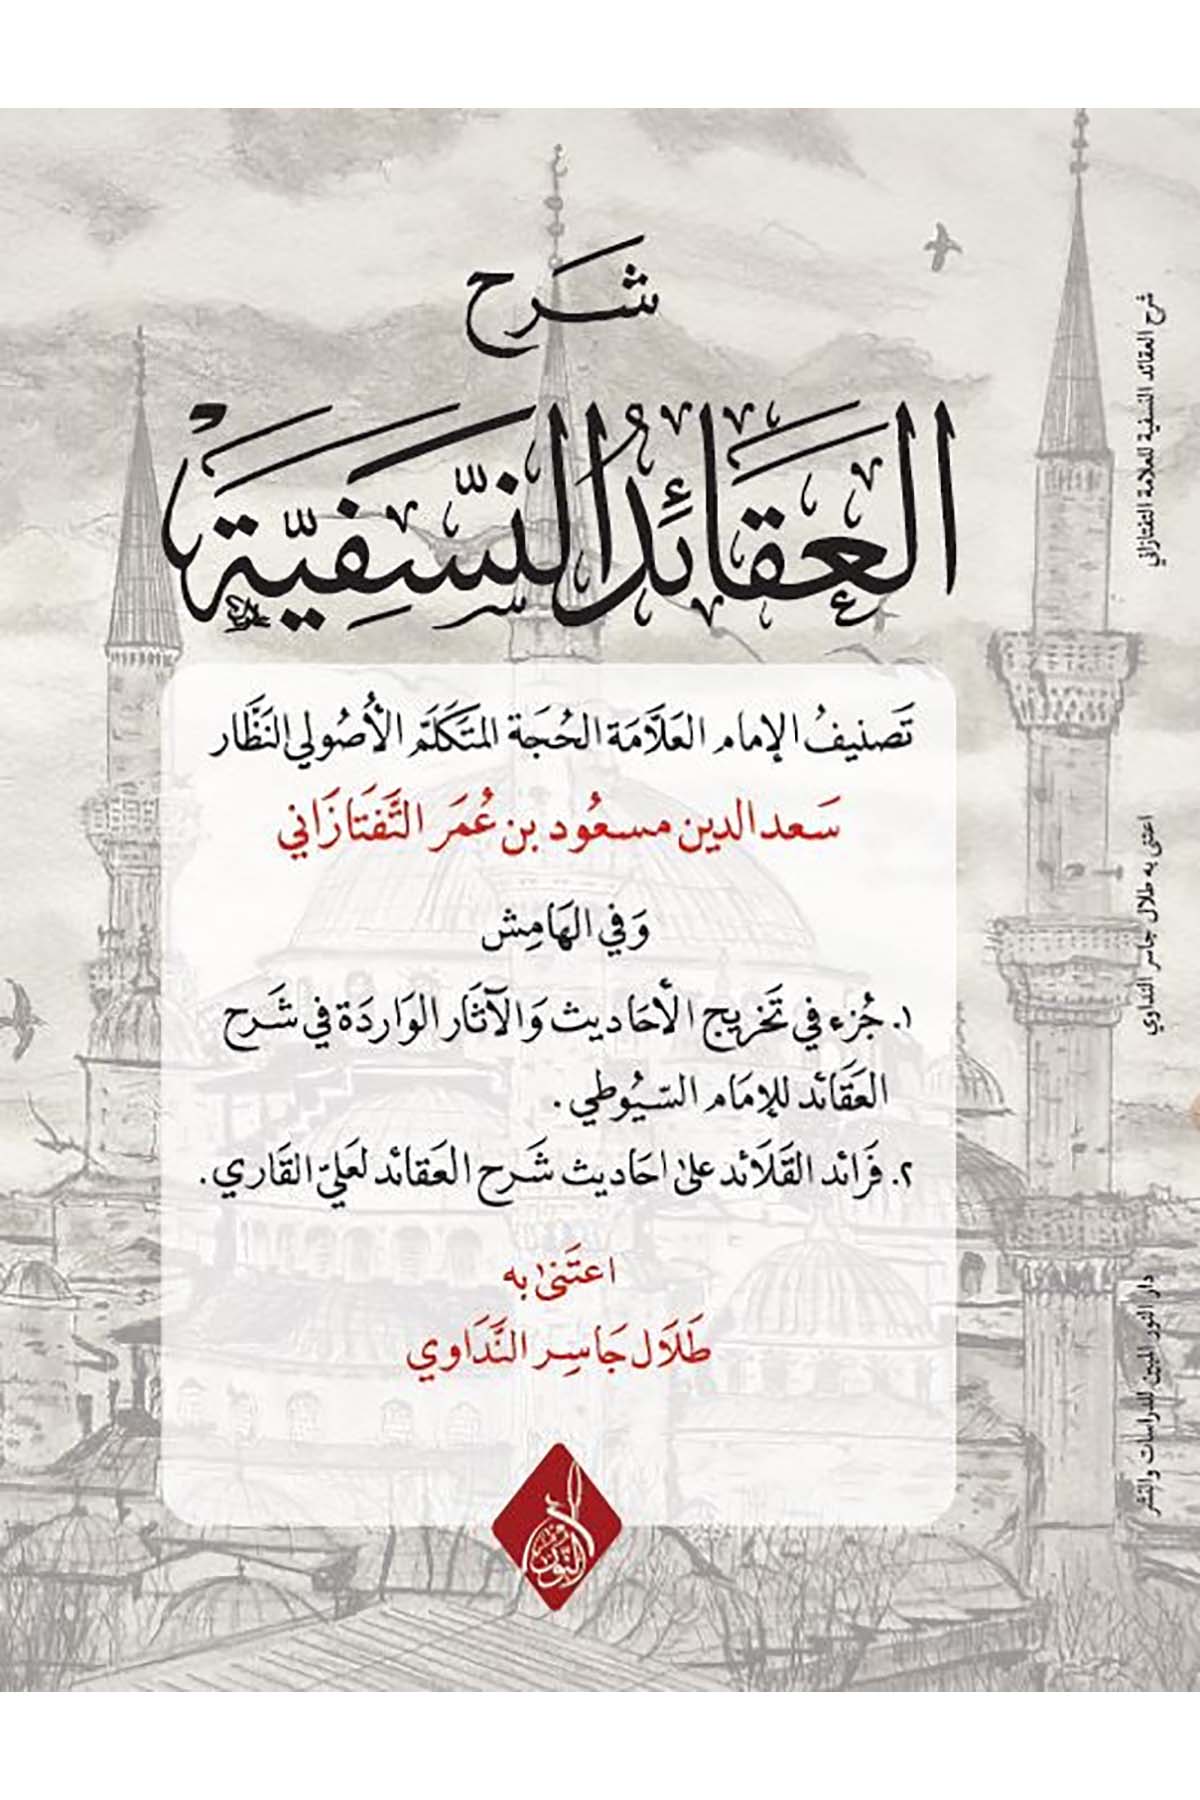 شَرح
العَقَائدُ النَّسَفِيَّة
تَصنيفُ الإمام العَلاَّمَة الحُجَة المتَكَلّم الأُصُولي النَظَّار
سَعد الدين مسعُود بن عُمَر التَّفتَازَاني
وَفي الهَامِش
١. جُزء في تَخريج الأحَاديث وَالآثَار الوَاردَة في شَرح
العَقَائد للإمَام السّيُوطي.
٢. فَرائد القَلَائد على احَاديث شَرح العَقائد لعَليّ القَاري.
اعتَنى به
طَلَال جَاسِر النَّدَاوي
النّور
شرح العقائد النسفية للعلامة التفتازاني
اعتنى به طلال جاسر النداوي
دار النور المبين للدراسات والنشر